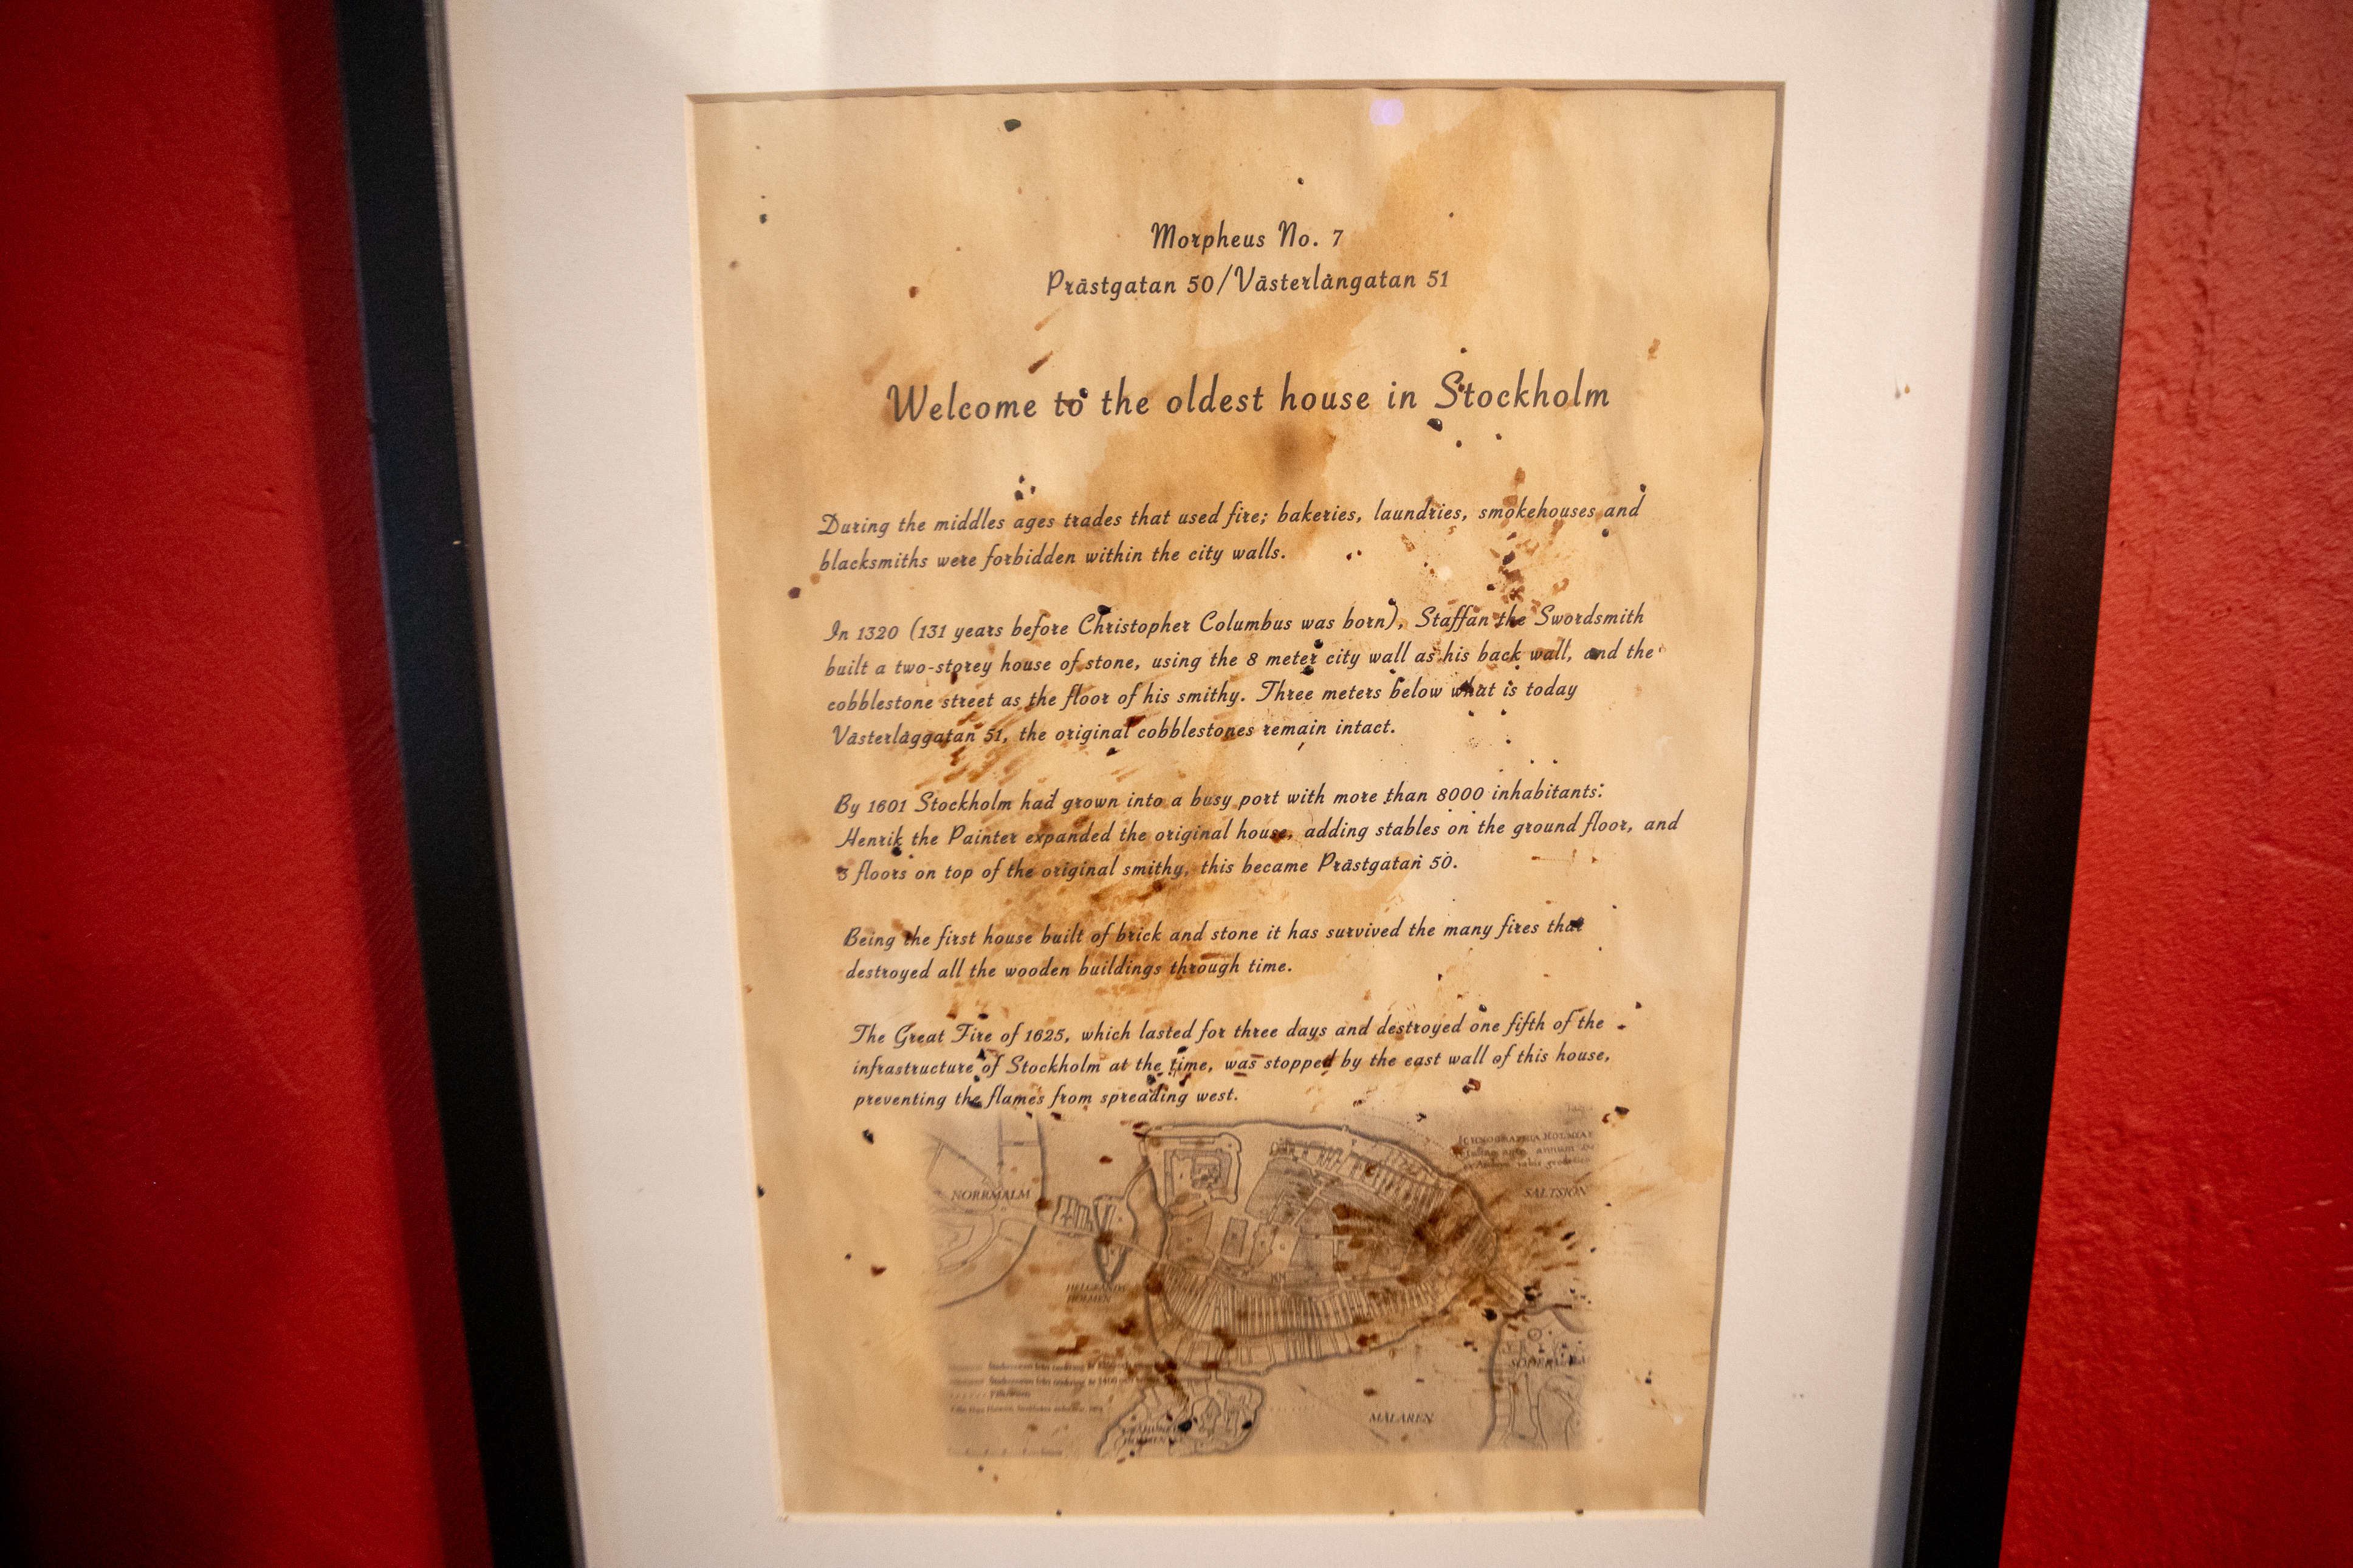 Morpheus No. 7
Prästgatan 50/Västerlångatan 51
Welcome to the oldest house in Stockholm
During the middles ages trades that used fire; bakeries, laundries, smokehouses and
blacksmiths were forbidden within the city walls.
In 1320 (131 years before Christopher Columbus was born), Staffan the Swordsmith
built a two-storey house of stone, using the 8 meter city wall as his back wall, and the
cobblestone street as the floor of his smithy. Three meters below what is today
Västerlåggatan 51, the original cobblestones remain intact.
By 1601 Stockholm had grown into a busy port with more than 8000 inhabitants:
Henrik the Painter expanded the original house, adding stables on the ground floor, and
3 floors on top of the original smithy, this became Prästgatan 50.
Being the first house built of brick and stone it has survived the many fires that
destroyed all the wooden buildings through time.
The Great Fire of 1625, which lasted for three days and destroyed one fifth of the
infrastructure of Stockholm at the time, was stopped by the east wall of this house,
preventing the flames from spreading west.
ICHNOGRAPHIA HOLMIAE
annum
NORRMALM
SALTSJÖN
HOLMEN
MÄLAREN